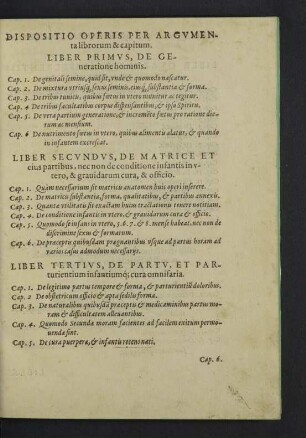 DISPOSITIO OPERIS PER ARGVMEN
ta librorum & capitum.
LIBER PRIMVS, DE GE-
neratione hominis.
Cap. 1. De genitali semine, quid sit, vnde & quomodo nascatur.
Cap. 2. De mixtura vtriusq; sexus seminis, eiusq; substantia & forma.
Cap. 3. De tribus tunicis, quibus fœtus in vtero munitur ac tegitur.
Cap. 4 De tribus facultatibus corpus dispensantibus, & ipso Spiritu.
Cap. 5. De vera partium generatione, & incremento fœtus pro ratione die
rum ac mensium.
Cap. 6 De nutrimento fœtus in vtero, quibus alimentis alatur, & quando
in infantem excrescat.
LIBER SECVNDVS, DE MATRICE ET
eius partibus, nec non de conditione infantis in v-
tero, & grauidarum cura, & officio.
Cap. 1. Quàm necessarium sit matricis anatomen huic operi inserere.
Cap. 2. De matricis substantia, forma, qualitatibus, & partibus annexis.
Cap. 3. Quanta vtilitatis sit exactam huius tractationem tenere notitiam.
Cap. 4. De conditione infantis in vtero, & grauidarum cura & officio.
Cap. 5. Quomodo se infans in vtero, 5. 6. 7. & 8. mensis habeat, nec non de
discrimine sexus & formarum.
Cap. 6. De præceptis quibusdam pragnantibus vsque ad partus horam ad
varios casus admodum necessarijs.
LIBER TERTIVS, DE PARTV, ET PAR-
turientium infantiumq; cura omnifaria.
Cap. 1. De legitimo partus tempore & forma, & parturientis doloribus.
Cap. 2 De obstetricum officio & apta sedulis forma.
Cap. 3. De naturalibus quibusdā præceptis & medicaminibus partus mo-
ram & difficultatem alleuantibus.
Cap. 4. Quomodo Secundæ moram facientes ad facilem exitum permo-
uendæ sint.
Cap. 5. De cura puerperæ, & infantis recens nati,
Cap. 6.